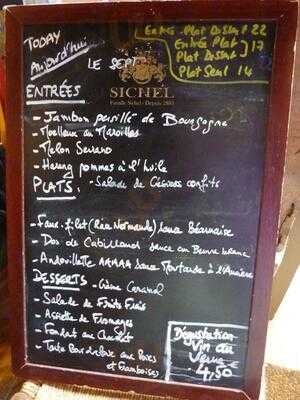 TODAY
Aujourd'hui
Entrée - Plat Dessert 22
Entrée Plat } 17
Plat Dessert
Plat Seul 14
LE SEPT
SICHEL
Famille Sichel - Depuis 1883
ENTRÉES
- Jambon persillé de Bourgogne
- Moelleux au Maroilles
- Melon Serrano
- Hareng pommes à l'huile
- Salade de Gésiers confits
PLATS.
- Faux-filet (Race Normande) sauce Béarnaise
- Dos de Cabillaud sauce au Beurre blanc
- Andouillette AAAAA sauce Moutarde à l'Ancienne
DESSERTS
- Crème Caramel
- Salade de Fruits Frais
- Assiette de Fromages
- Fondant au Chocolat
- Tarte Bourdaloue aux Poires
et Framboises
Dégustation
Vin du
Verre
4,50